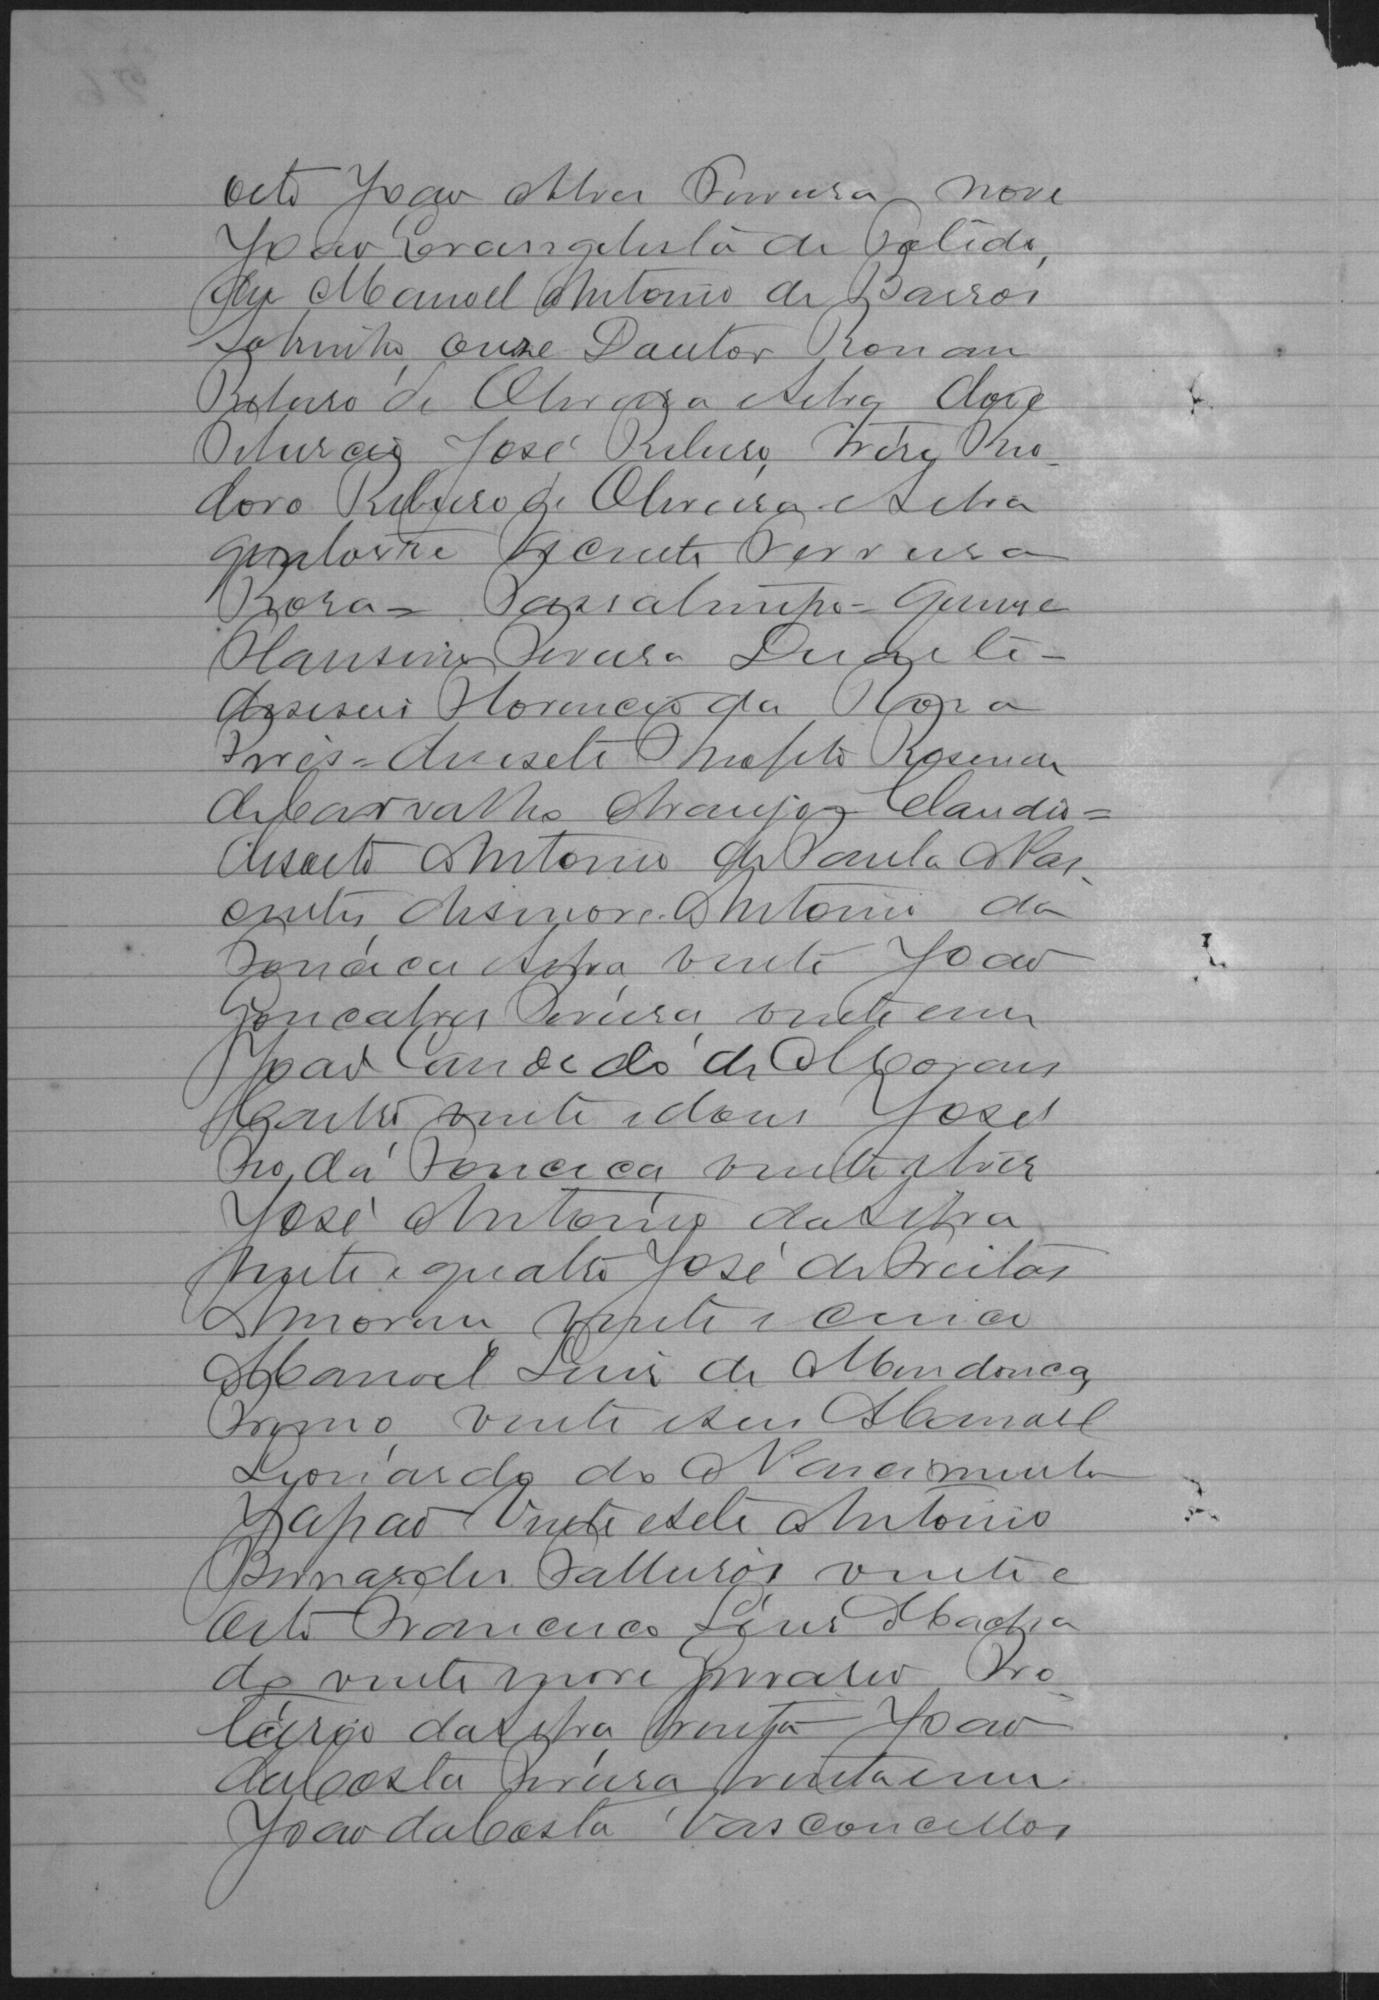 oito João Alves Ferreira, nove
João Evangelista de
dez Manoel Antonio de Barros
Sobrinho, onze Doutor Ronan
Ribeiro de Oliveira e Silva doze
José Ribeiro, treze Theo-
doro Ribeiro de Oliveira e Silva
quatorze Vicente Ferreira
Rosa = = quinze
Pereira Duarte -
deseseis Florencio da Rosa
Pires = desesete Rosendo
de Carvalho Araujo Claudio =
desoito Antonio de Paula Nas-
centes, desenove Antonio da
Fonceca e Silva, vinte João
Gonçalves Pereira, vinte e um
João Candido de Moraes
Castro, vinte e dous José
da Fonceca vinte e tres
José Antonio da Silva
vinte e quatro José de Freitas
Amorim, vinte e cinco
Manoel Luis de Mendonça
Primo, vinte e seis Manoel
Leonardo do Nascimento
Japão Vinte e sete Antonio
Bernardes vinte e
oito Francisco Luis Macha
do vinte e nove
da Silva, trinta João
da Costa Pereira, trinta e um
João da Costa Vasconcellos